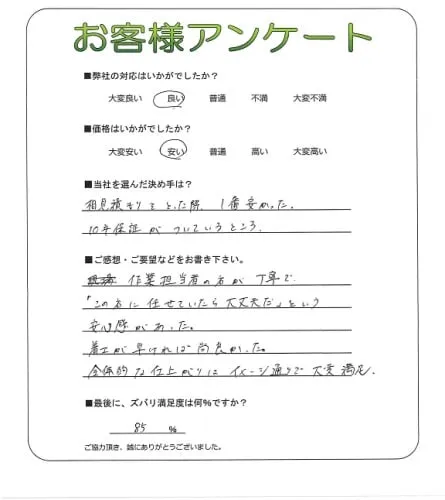 お客様アンケート
■弊社の対応はいかがでしたか？
大変良い 良い 普通 不満 大変不満
■価格はいかがでしたか？
大変安い 安い 普通 高い 大変高い
■当社を選んだ決め手は？
相見積もりをとった際、1番安かった。
10年保証がついているところ。
■ご感想・ご要望などをお書き下さい。
作業担当者の方が丁寧で
「この方に任せていたら大丈夫だ」という
安心感があった。
着工が早ければ尚良かった。
全体的な仕上がりはイメージ通りで大変満足。
■最後に、ズバリ満足度は何%ですか？
85 %
ご協力頂き、誠にありがとうございました。